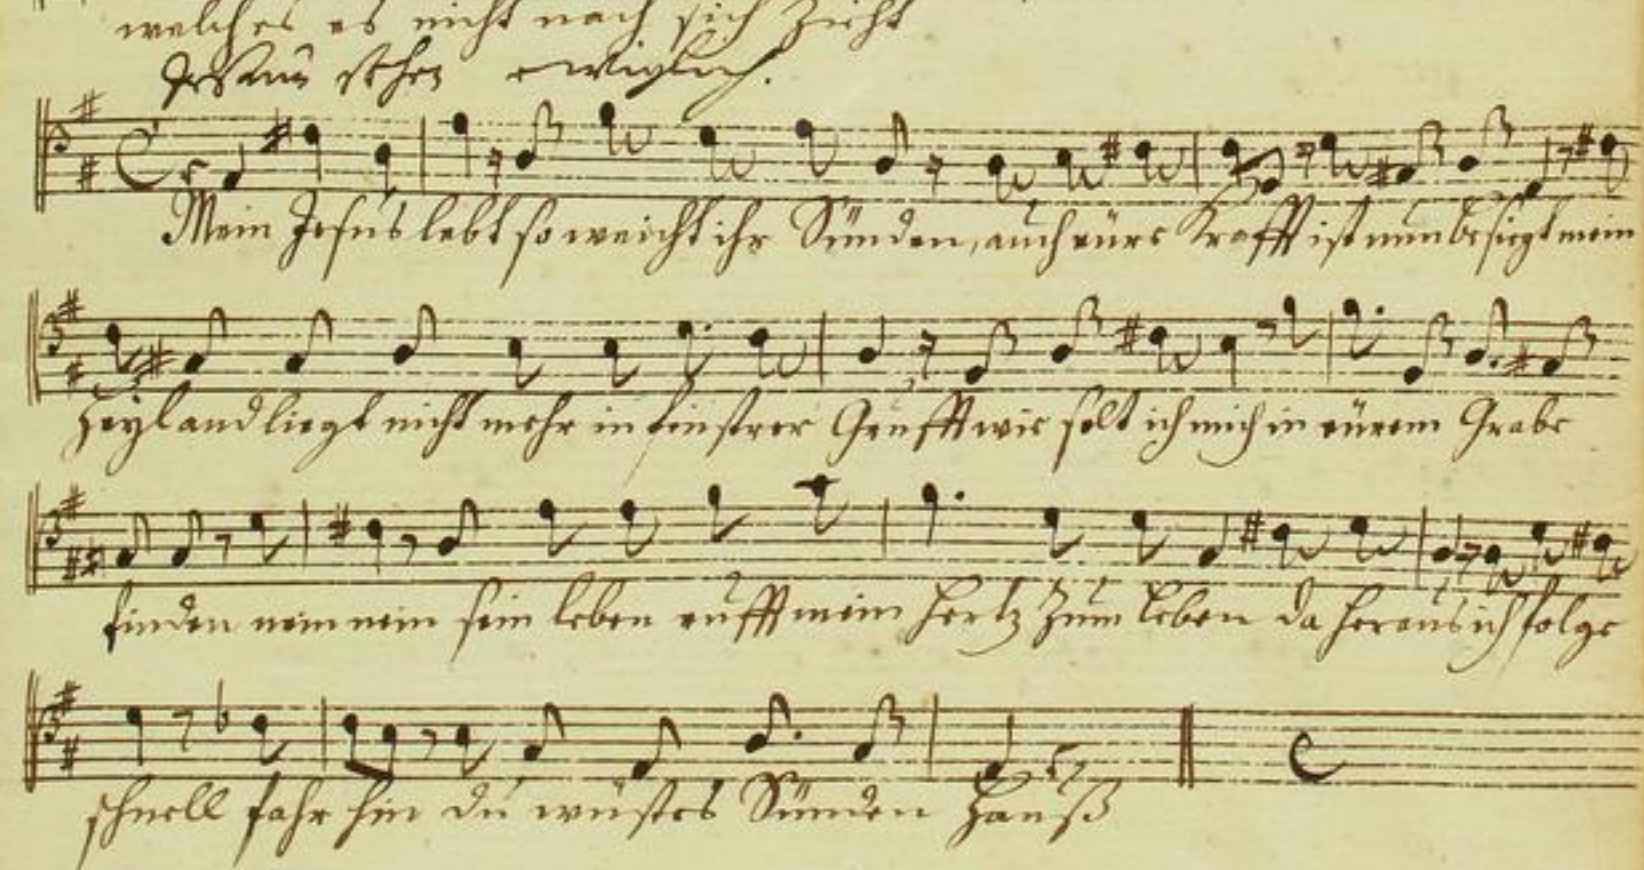 welches es nicht nach sich Zieht
stehen ewiglich.
Mein Jesus lebt so weicht ihr Sünden, auch eüre Krafft ist nun besiegt mein
Heyland liegt nicht mehr in finstrer Grufft wie solt ich mich in eürem Grabe
finden nein nein sein leben rufft mein Hertz Zum Leben da heraus ich folge
schnell fahr hin du wüstes Sünden Hauß